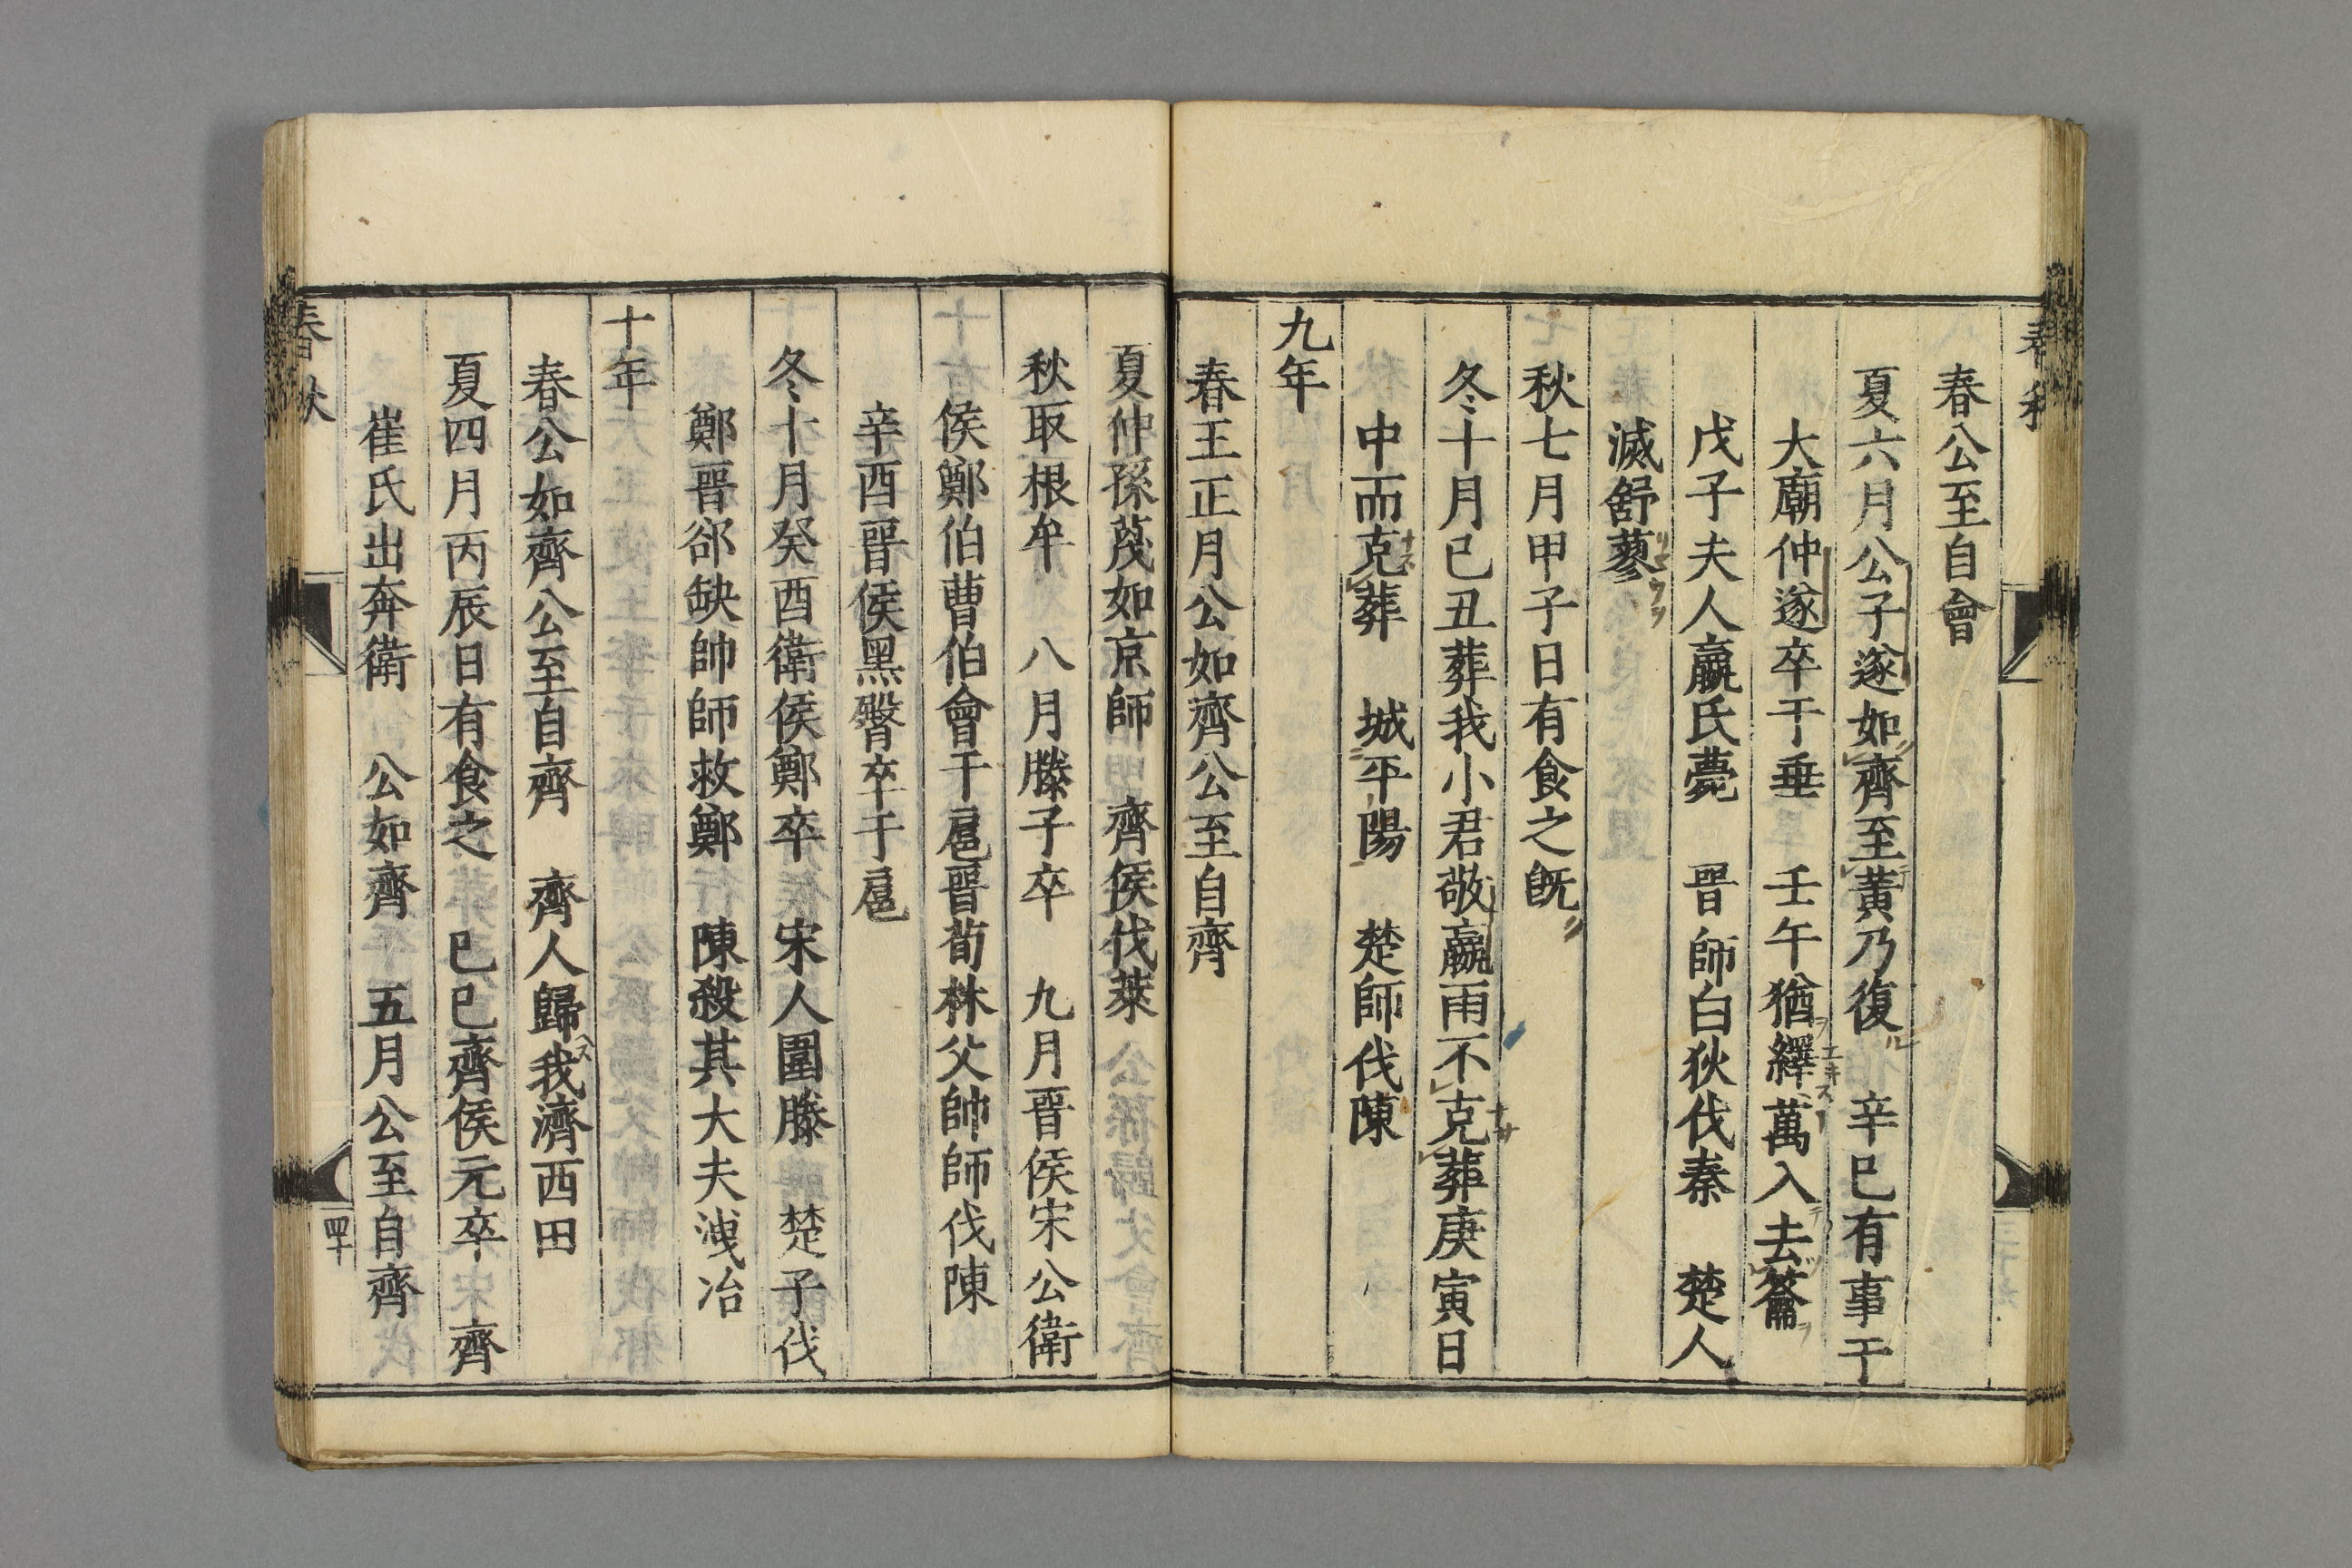 春公至自會
夏六月公子遂如齊至黃乃復　辛巳有事于
大廟仲遂卒于垂　壬午猶繹萬入去籥
戊子夫人嬴氏薨　晉師白狄伐秦　楚人
滅舒蓼
秋七月甲子日有食之旣
冬十月己丑葬我小君敬嬴雨不克葬庚寅日
中而克葬　城平陽　楚師伐陳
九年
春王正月公如齊公至自齊
夏仲孫蔑如京師　齊侯伐萊
秋取根牟　八月滕子卒　九月晉侯宋公衛
侯鄭伯曹伯會于扈晉荀林父帥師伐陳
辛酉晉侯黑臀卒于扈
冬十月癸酉衛侯鄭卒　宋人圍滕　楚子伐
鄭晉郤缺帥師救鄭　陳殺其大夫洩冶
十年
春公如齊公至自齊　齊人歸我濟西田
夏四月丙辰日有食之　己巳齊侯元卒　齊
崔氏出奔衛　公如齊　五月公至自齊
春秋
四十